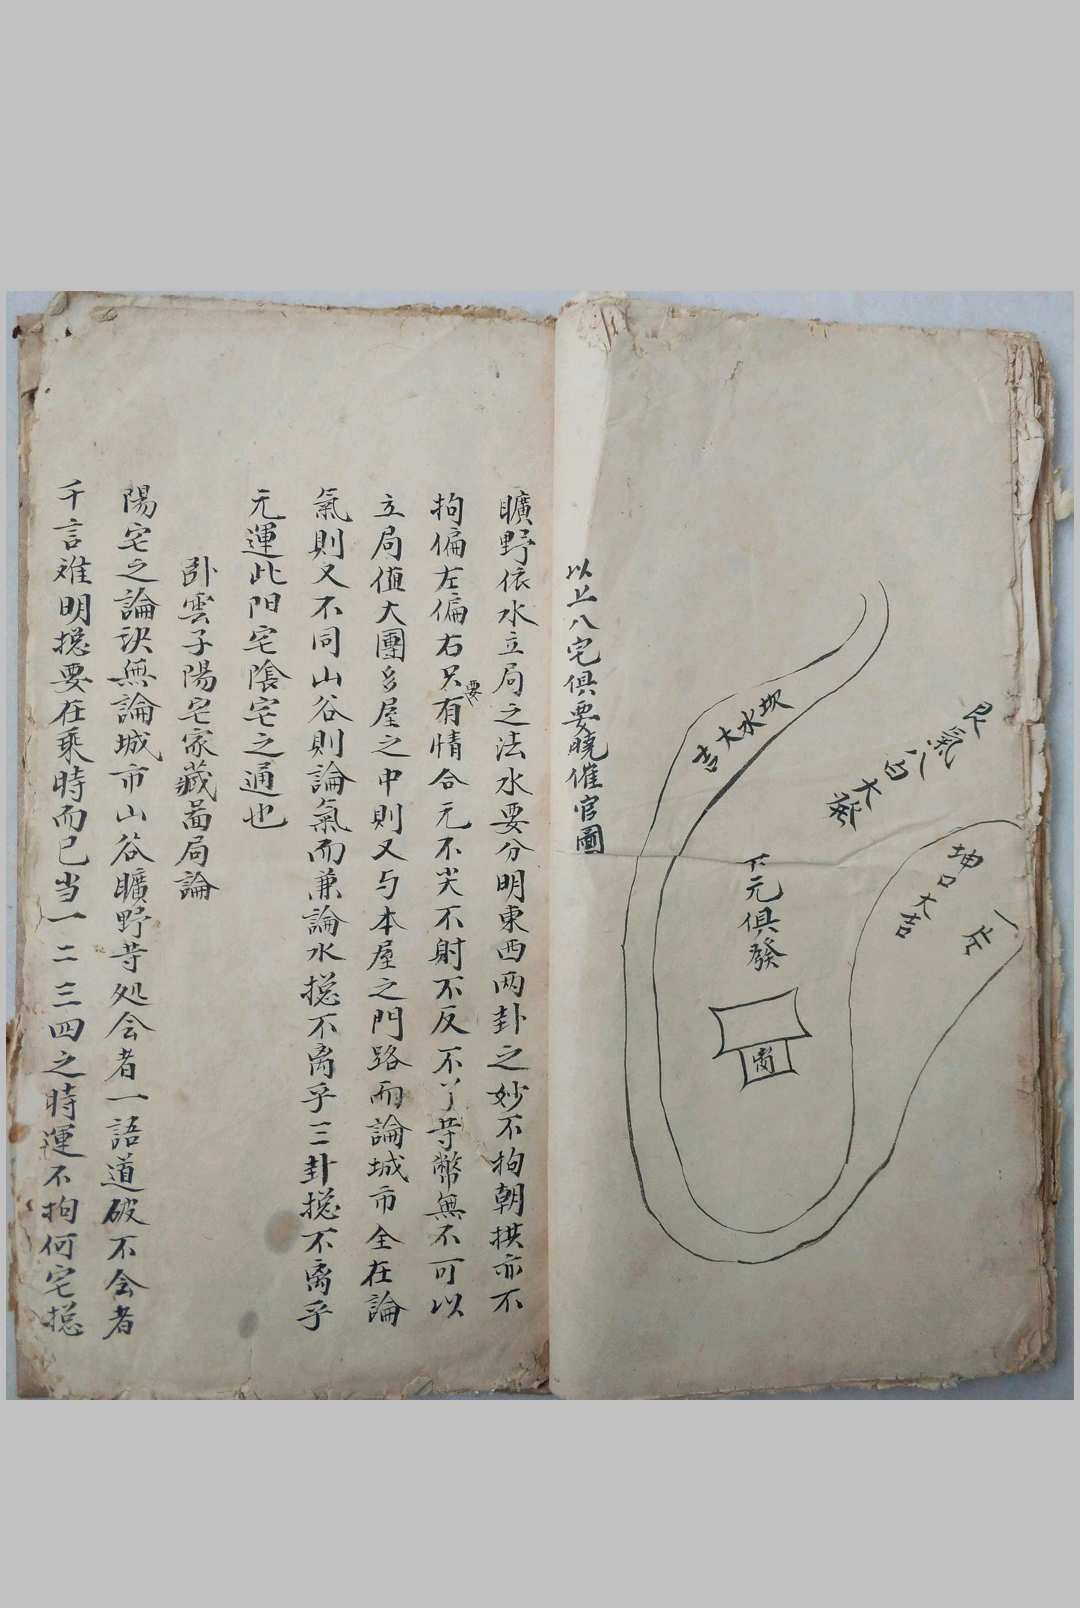 艮氣八白大發
坤口大吉
一片
坎水大吉
下元俱發
以上八宅俱要曉催官圖
曠野依水立局之法水要分明東西两卦之妙不拘朝拱亦不
拘偏左偏右只要有情合元不尖不射不反不丫等幣無不可以
立局值大團多屋之中則又与本屋之門路而論城市全在論
氣則又不同山谷則論氣而兼論水捴不离乎三卦捴不离乎
元運此阳宅隂宅之通也
卧雲子陽宅家藏啚局論
陽宅之論訣無論城市山谷曠野等処会者一語道破不会者
千言难明捴要在乘時而已当一二三四之時運不拘何宅捴